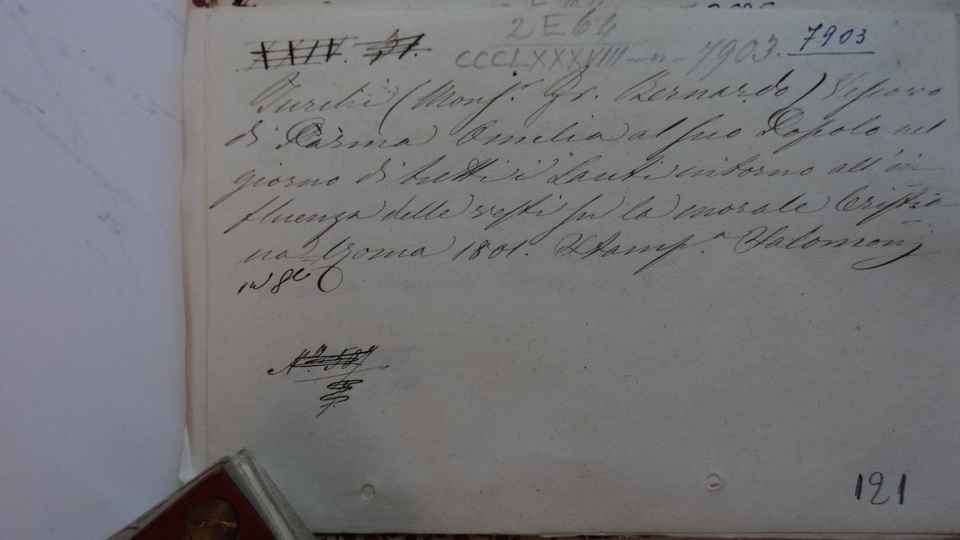 2 E 64
XXIV. 51.
CCCLXXXVIII — n — 7903. 7903
Turchi (Monsr. Fr. Bernardo) Vescovo
di Parma Omilia al suo Popolo nel
giorno di tutti i Santi intorno all'in
fluenza delle vesti su la morale Cristia
na Roma 1801. Stamp.a Salomonj
in 8vo
121